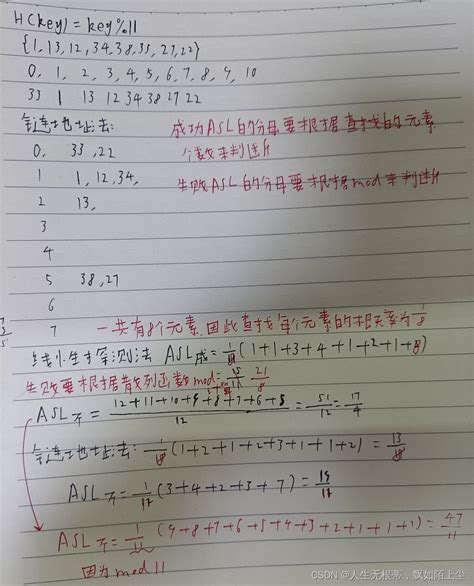 H(key) = key%11
{1,13,12,34,38,33,27,22}
0, 1, 2, 3, 4, 5, 6, 7, 8, 9, 10
33 1 13 12 34 38 27 22
链地址法: 成功ASL的分母要根据查找的元素
0, 33,22 个数来判断
1 1,12,34, 失败ASL的分母要根据mod来判断
2 13,
3
4
5 38,27
6
7 一共有8个元素,因此查找每个元素的概率为1/8
线性探测法 ASL成= (1+1+3+4+1+2+1+8)
失败要根据散列函数mod 21/8
ASL不= 12+11+10+9+8+7+6+5/12 = 51/12 = 17/4
链地址法: 1/8(1+2+1+2+3+1+1+2) = 13/8
ASL不=1/11(3+4+2+3+7)=19/11
ASL不=1/11(9+8+7+6+5+4+3+2+1+1+1)=47/11
因为mod 11
CSDN @人生无根蒂,飘如陌上尘